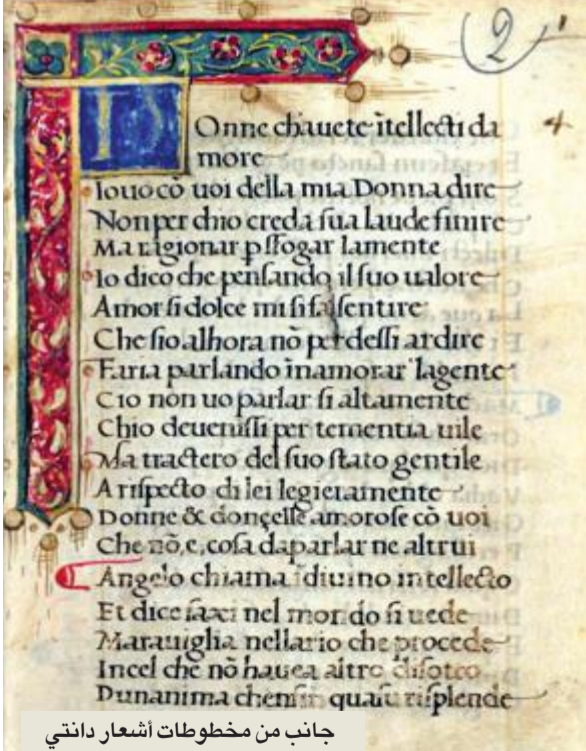 2
DOnne chauete ĩtellecti da
more
Iouo cō uoi della mia Donna dire
Non per chio creda sua laude finire
Ma ragionar p sfogar lamente
Io dico che pensando il suo ualore
Amor si dolce mi si fa sentire
Che sio alhora nō perdessi ardire
Faria parlando ĩnamorar lagente
Cio non uo parlar si altamente
Chio deuenissi per tementia uile
Ma tractero del suo stato gentile
A rispecto di lei legieramente
Donne & donçelle amorose cō uoi
Che nō,e,cosa daparlar ne altrui
Angelo chiama ĩdiuino intellecto
Et dice nel mondo si uede
Marauiglia che procede
Incel che nō hauea altro
Dunanima quasu risplende
جانب من مخطوطات أشعار دانتي